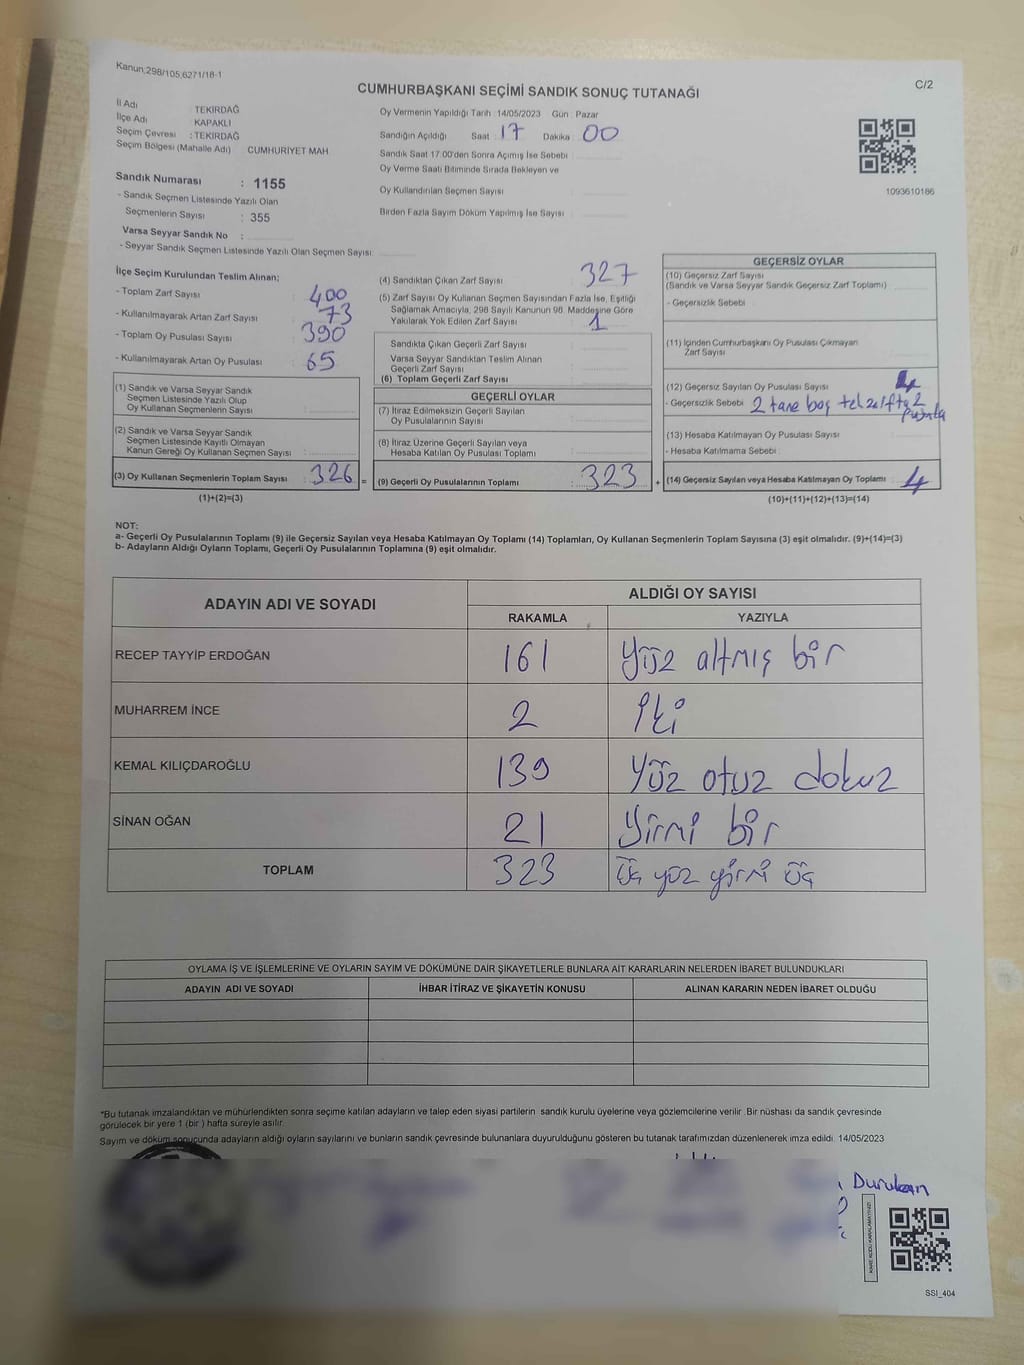 Kanun;298/105,6271/18-1
CUMHURBAŞKANI SEÇİMİ SANDIK SONUÇ TUTANAĞI
C/2
İl Adı : TEKİRDAĞ
İlçe Adı : KAPAKLI
Seçim Çevresi : TEKİRDAĞ
Seçim Bölgesi (Mahalle Adı) CUMHURİYET MAH.
Oy Vermenin Yapıldığı Tarih :14/05/2023 Gün : Pazar
Sandığın Açıldığı Saat : 17 Dakika : 00
Sandık Saat 17.00'den Sonra Açımış İse Sebebi :
Oy Verme Saati Bitiminde Sırada Bekleyen ve
Oy Kullandırılan Seçmen Sayısı :
Birden Fazla Sayım Döküm Yapılmış İse Sayısı :
1093610186
Sandık Numarası : 1155
- Sandık Seçmen Listesinde Yazılı Olan
Seçmenlerin Sayısı : 355
Varsa Seyyar Sandık No :
- Seyyar Sandık Seçmen Listesinde Yazılı Olan Seçmen Sayısı:
İlçe Seçim Kurulundan Teslim Alınan;
- Toplam Zarf Sayısı : 400
- Kullanılmayarak Artan Zarf Sayısı : 73
- Toplam Oy Pusulası Sayısı : 390
- Kullanılmayarak Artan Oy Pusulası : 65
(1) Sandık ve Varsa Seyyar Sandık
Seçmen Listesinde Yazılı Olup
Oy Kullanan Seçmenlerin Sayısı :
(2) Sandık ve Varsa Seyyar Sandık
Seçmen Listesinde Kayıtlı Olmayan
Kanun Gereği Oy Kullanan Seçmen Sayısı :
(3) Oy Kullanan Seçmenlerin Toplam Sayısı : 326 =
(1)+(2)=(3)
(4) Sandıktan Çıkan Zarf Sayısı : 327
(5) Zarf Sayısı Oy Kullanan Seçmen Sayısından Fazla İse, Eşitliği
Sağlamak Amacıyla, 298 Sayılı Kanunun 98. Maddesine Göre
Yakılarak Yok Edilen Zarf Sayısı : 1
Sandıkta Çıkan Geçerli Zarf Sayısı :
Varsa Seyyar Sandıktan Teslim Alınan
Geçerli Zarf Sayısı :
(6) Toplam Geçerli Zarf Sayısı :
GEÇERLİ OYLAR
(7) İtiraz Edilmeksizin Geçerli Sayılan
Oy Pusulalarının Sayısı :
(8) İtiraz Üzerine Geçerli Sayılan veya
Hesaba Katılan Oy Pusulası Toplamı :
(9) Geçerli Oy Pusulalarının Toplamı : 323 +
GEÇERSİZ OYLAR
(10) Geçersiz Zarf Sayısı
(Sandık ve Varsa Seyyar Sandık Geçersiz Zarf Toplamı) :
- Geçersizlik Sebebi :
(11) İçinden Cumhurbaşkanı Oy Pusulası Çıkmayan
Zarf Sayısı :
(12) Geçersiz Sayılan Oy Pusulası Sayısı :
- Geçersizlik Sebebi : 2 tane boş tek zarfta 2
pusula
(13) Hesaba Katılmayan Oy Pusulası Sayısı :
- Hesaba Katılmama Sebebi :
(14) Geçersiz Sayılan veya Hesaba Katılmayan Oy Toplamı : 4
(10)+(11)+(12)+(13)=(14)
NOT:
a- Geçerli Oy Pusulalarının Toplamı (9) ile Geçersiz Sayılan veya Hesaba Katılmayan Oy Toplamı (14) Toplamları, Oy Kullanan Seçmenlerin Toplam Sayısına (3) eşit olmalıdır. (9)+(14)=(3)
b- Adayların Aldığı Oyların Toplamı, Geçerli Oy Pusulalarının Toplamına (9) eşit olmalıdır.
ADAYIN ADI VE SOYADI
ALDIĞI OY SAYISI
RAKAMLA YAZIYLA
RECEP TAYYİP ERDOĞAN 161 Yüz altmış bir
MUHARREM İNCE 2 İki
KEMAL KILIÇDAROĞLU 139 Yüz otuz dokuz
SİNAN OĞAN 21 Yirmi bir
TOPLAM 323 üç yüz yirmi üç
OYLAMA İŞ VE İŞLEMLERİNE VE OYLARIN SAYIM VE DÖKÜMÜNE DAİR ŞİKAYETLERLE BUNLARA AİT KARARLARIN NELERDEN İBARET BULUNDUKLARI
ADAYIN ADI VE SOYADI İHBAR İTİRAZ VE ŞİKAYETİN KONUSU ALINAN KARARIN NEDEN İBARET OLDUĞU
*Bu tutanak imzalandıktan ve mühürlendikten sonra seçime katılan adayların ve talep eden siyasi partilerin sandık kurulu üyelerine veya gözlemcilerine verilir. Bir nüshası da sandık çevresinde
görülecek bir yere 1 (bir ) hafta süreyle asılır.
Sayım ve döküm sonucunda adayların aldığı oyların sayılarını ve bunların sandık çevresinde bulunanlara duyurulduğunu gösteren bu tutanak tarafımızdan düzenlenerek imza edildi. 14/05/2023
Durukan
KARE KODU KARALAMAYINIZ!
SSI_404